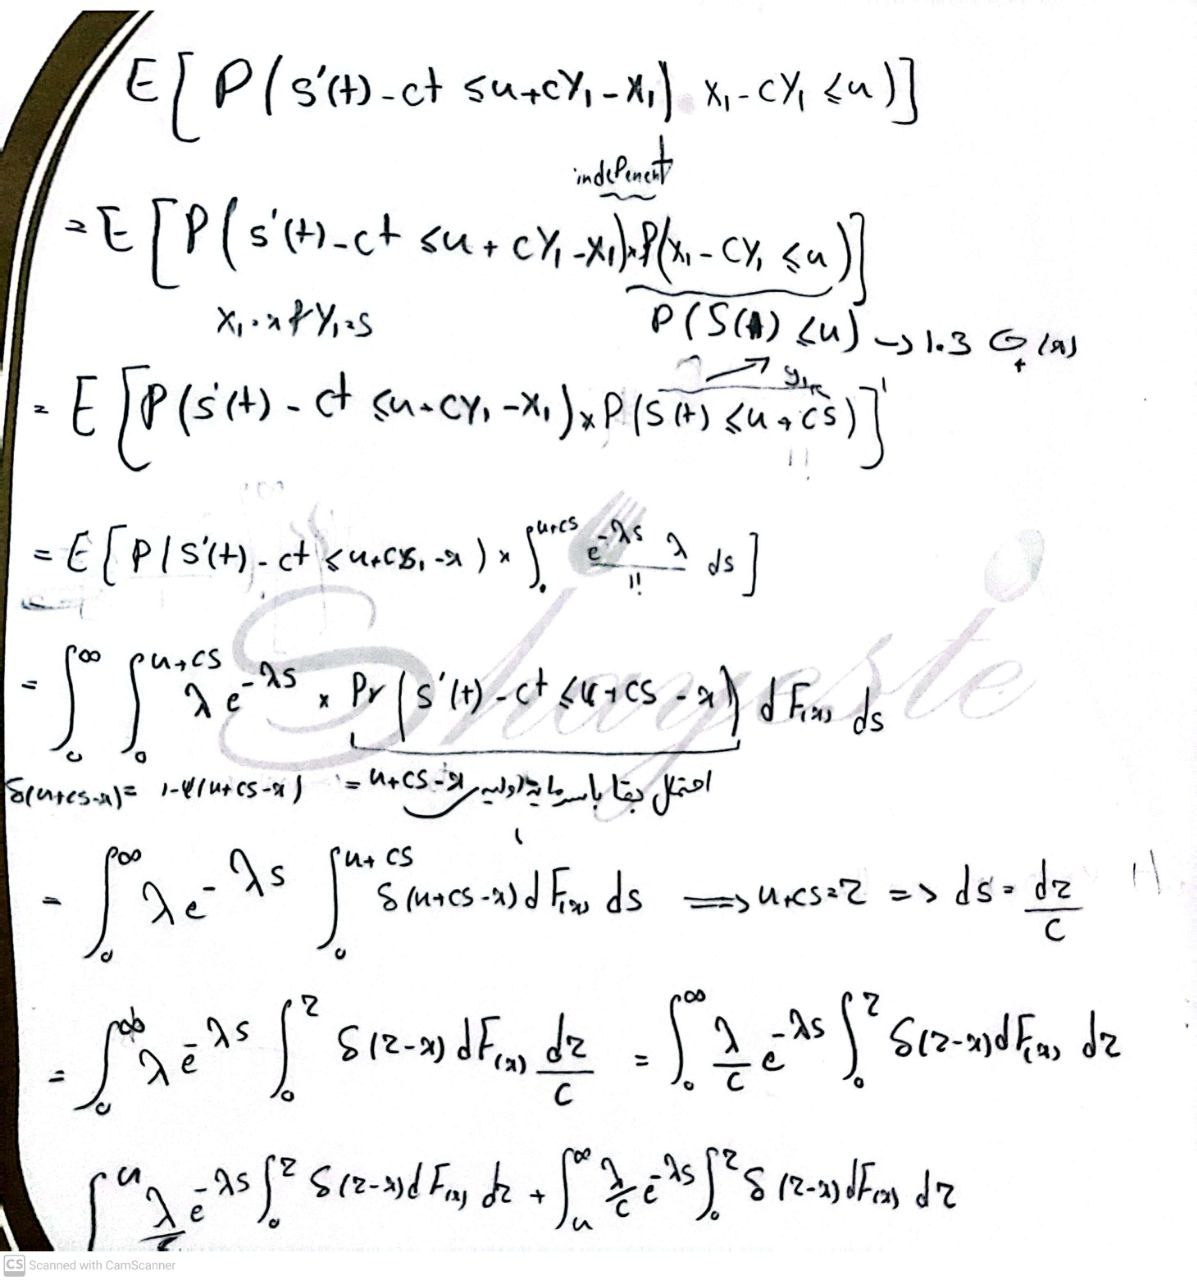 E[P(S'(t)-ct ≤u+cY₁-X₁) X₁-cY₁ ≤u)]
indePenent
= E[P(S'(t)-ct ≤u+cY₁-X₁)×P(X₁-CY₁ ≤u)]
X₁=x & Y₁=s
P(S(1) ≤u) → 1.3 G (x)
t
= E[P(S'(t) - ct ≤u+cY₁-X₁)×P(S(t) ≤u+cs)]
1!
= E[P(S'(t)-ct ≤u+cs, -x) × ∫₀^{u+cs} e^{-λs} λ / 1! ds]
= ∫₀^∞ ∫₀^{u+cs} λ e^{-λs} × Pr(S'(t)-ct ≤u+cs-x) dF(x) ds
δ(u+cs-x)= 1-ψ(u+cs-x) = u+cs-x احتمال بقا با سرمایه اولیه
= ∫₀^∞ λe^{-λs} ∫₀^{u+cs} δ(u+cs-x)dF(x) ds ⟹ u+cs=z ⇒ ds = dz/c
= ∫₀^∞ λe^{-λs} ∫₀^z δ(z-x)dF(x) dz/c = ∫₀^∞ λ/c e^{-λs} ∫₀^z δ(z-x)dF(x) dz
∫^u λ/c e^{-λs} ∫₀^z δ(z-x)dF(x) dz + ∫_u^∞ λ/c e^{-λs} ∫₀^z δ(z-x)dF(x) dz
Shayeste
CS Scanned with CamScanner